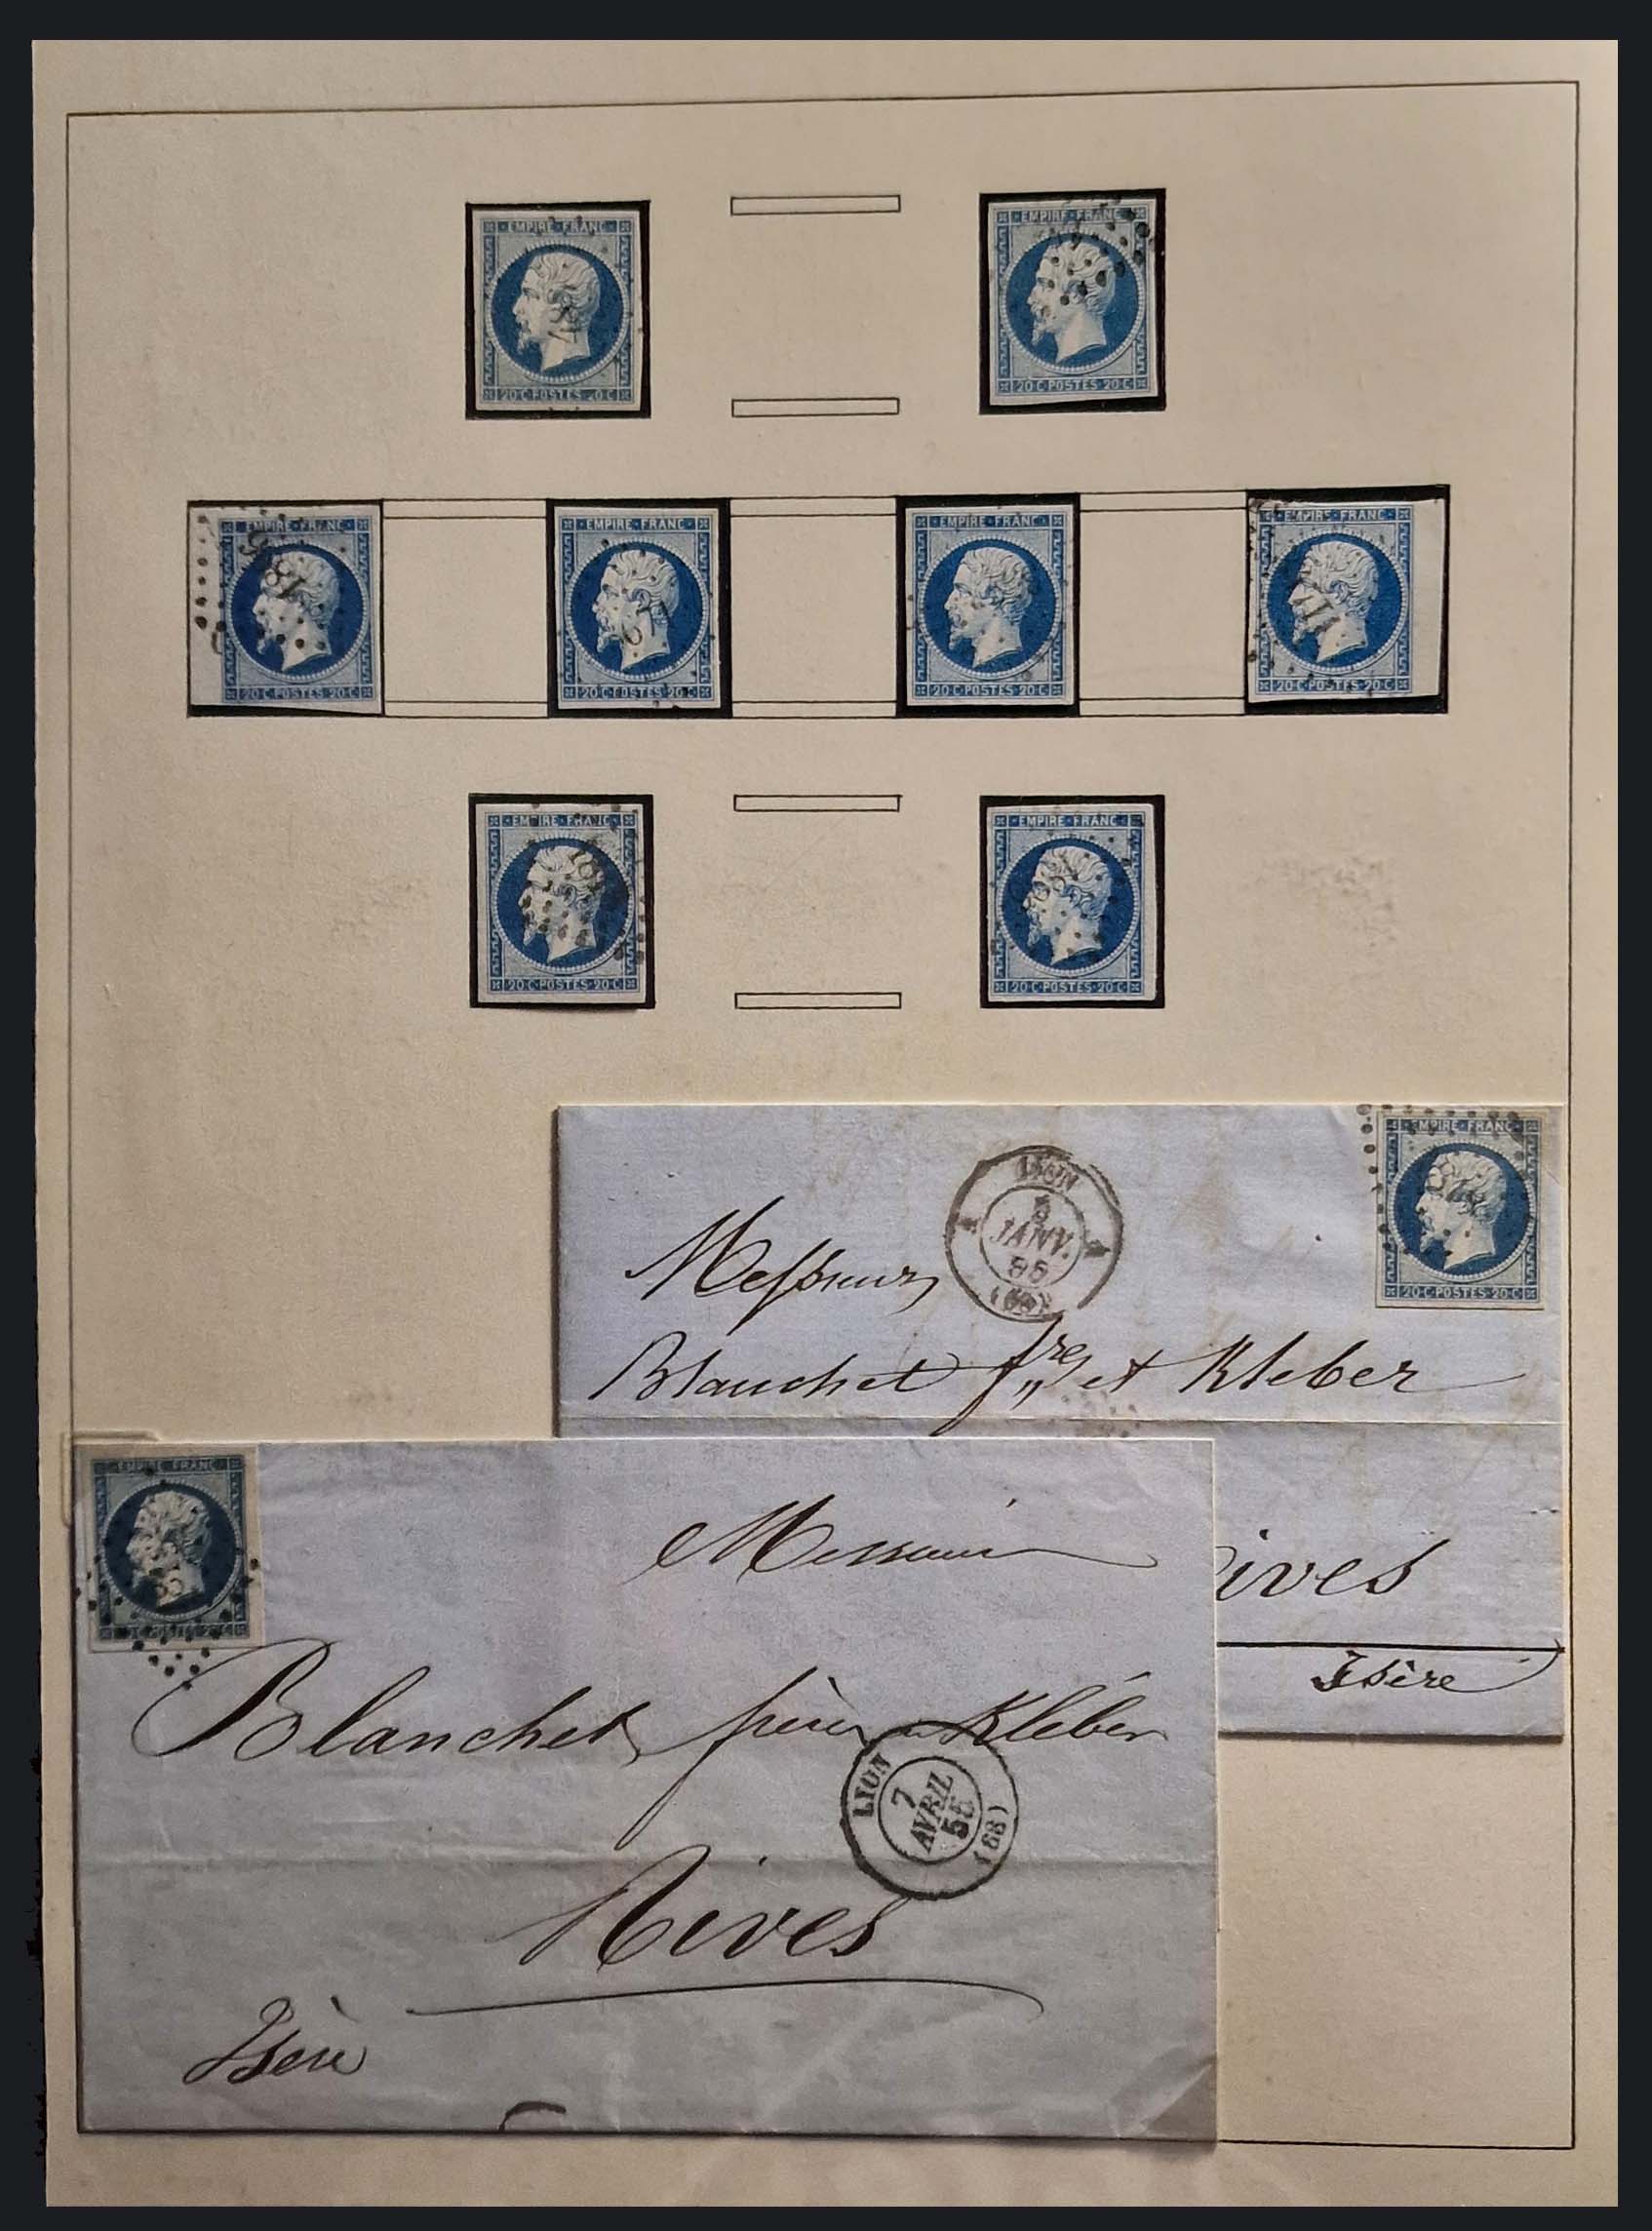 EMPIRE FRANC
20 C POSTES 20 C
EMPIRE FRANC
20 C POSTES 20 C
EMPIRE FRANC
1896
20 C POSTES 20 C
EMPIRE FRANC
20 C POSTES 20 C
EMPIRE FRANC
20 C POSTES 20 C
EMPIRE FRANC
20 C POSTES 20 C
EMPIRE FRANC
20 C POSTES 20 C
EMPIRE FRANC
1898
20 C POSTES 20 C
EMPIRE FRANC
20 C POSTES 20 C
LYON
5
JANV.
(68)
Messieurs
Blanchet fres et Kleber
ives
Isère
EMPIRE FRANC
POSTES 20 C
Messieurs
Blanchet frères Kléber
LYON
7
AVRIL
55
(68)
Rives
Isère